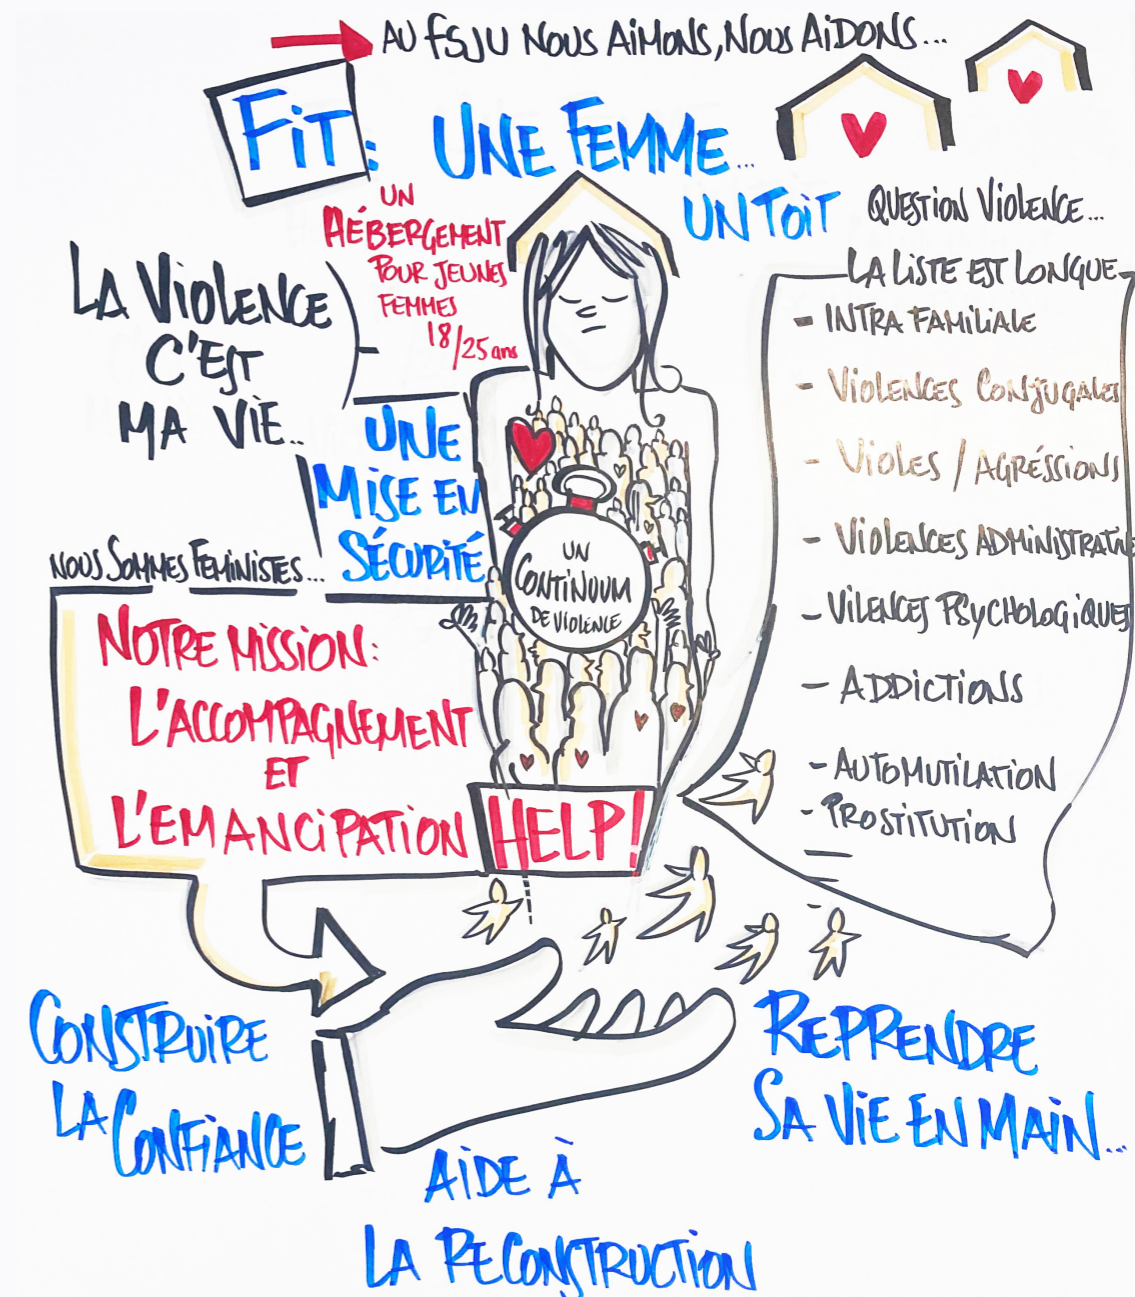 AU FSJU NOUS AiMONS, NOUS AiDONS...
FiT: UNE FEMME...
UN TOiT
UN
HÉBERGEMENT
POUR JEUNES
FEMMES
18/25 ans
LA ViOLENCE
C'EST
MA ViE...
UNE
MiSE EN
SÉCURiTÉ
NOUS SOMMES FEMiNiSTES...
NOTRE MiSSiON:
L'ACCOMPAGNEMENT
ET
L'EMANCiPATiON
UN
CONTiNUUM
DE ViOLENCE
HELP!
QUESTiON ViOLENCE...
LA LiSTE EST LONGUE
- INTRA FAMiLiALE
- ViOLENCES CONJUGALES
- ViOLES / AGRÉSSiONS
- ViOLENCES ADMiNiSTRATiVE
- ViLENCES PSYCHOLOGiQUES
- ADDiCTiONS
- AUTOMUTiLATiON
- PROSTiTUTiON
CONSTRUiRE
LA CONFiANCE
AiDE À
LA RECONSTRUCTiON
REPRENDRE
SA ViE EN MAiN...